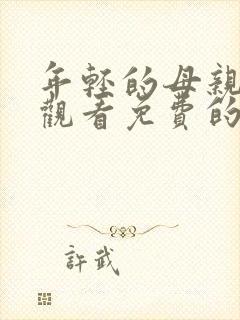 年輕的母親
觀看免費的
許武